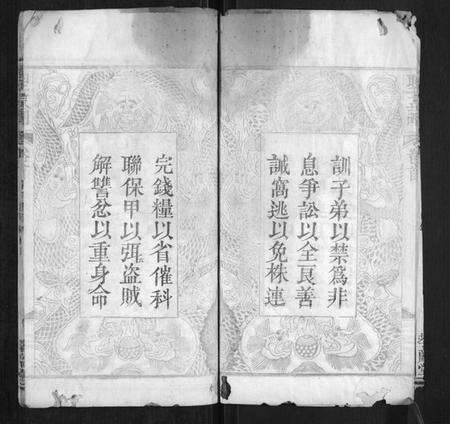 訓子弟以禁為非
息爭訟以全良善
誡窩逃以免株連
完錢糧以省催科
聯保甲以弭盜賊
解讐忿以重身命